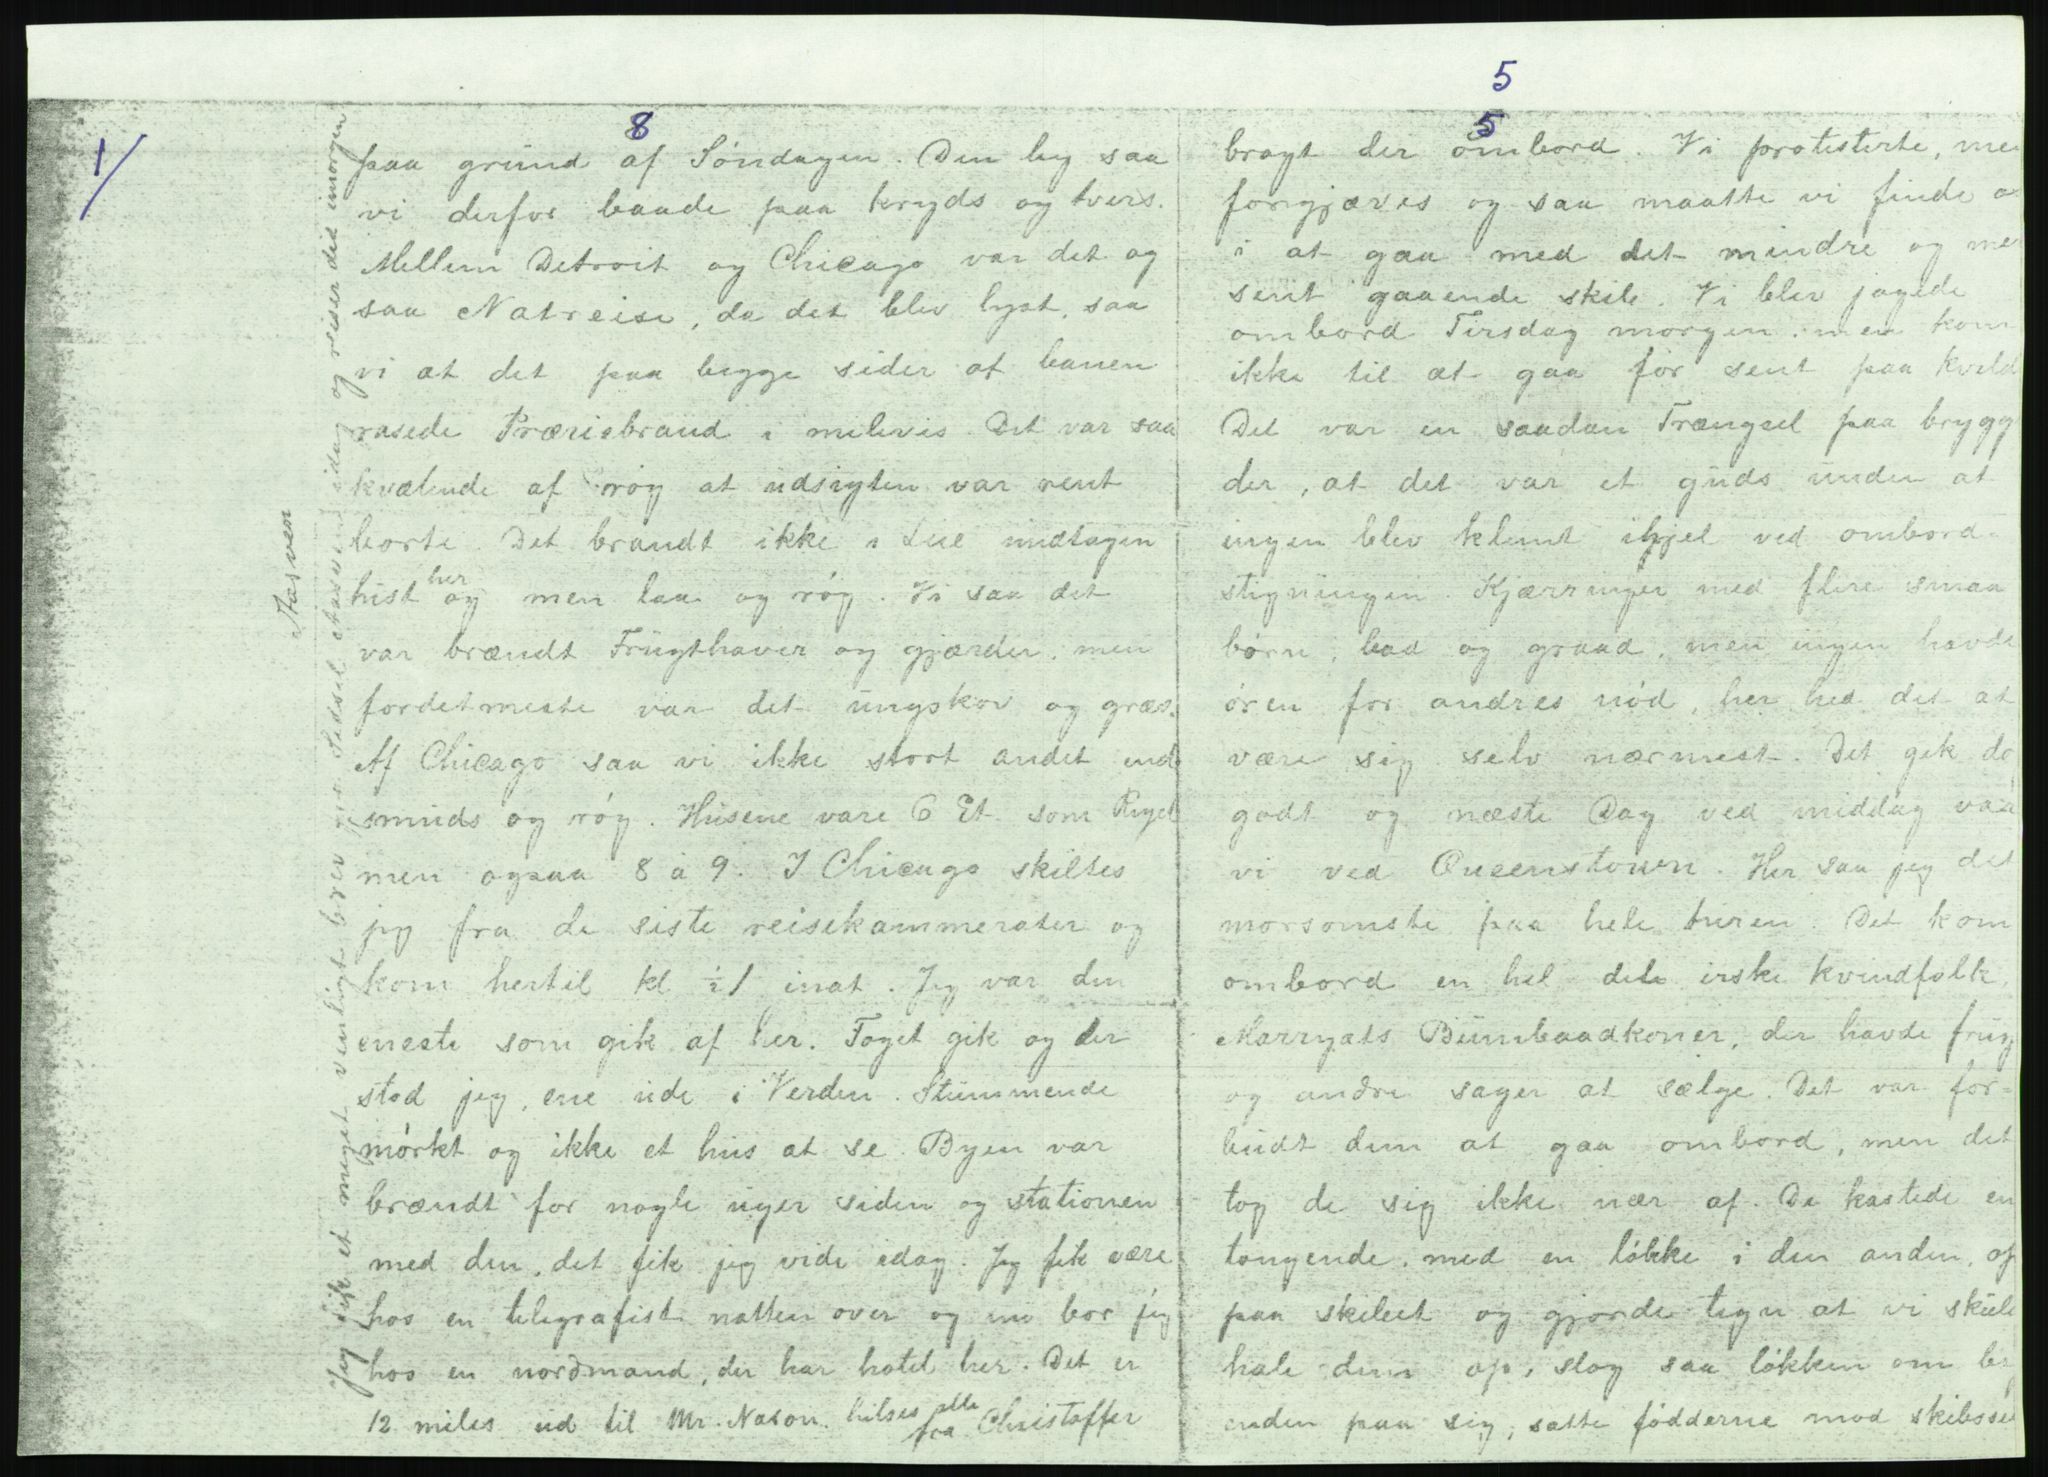 1/
8
paa grund af Søndagen. Den laa saa
vi derfor baade paa kryds og tvers.
Mellem Detroit og Chicago var det og
saa Natreise, da det blev lyst, saa
vi at det paa begge sider af banen
rasede Præriebrand i milevis. Det var saa
kvælende af røg at udsigten var rent
borte. Det brandt ikke i Lue undtagen
hist og her men laa og røg. Vi saa det
var brændt Frugthaver og gjærder, men
fordetmeste var det ungskov og græs.
Af Chicago saa vi ikke stort andet end
smuds og røg. Husene vare 6 Et. som Regel
men ogsaa 8 à 9. I Chicago skiltes
jeg fra de siste reisekammerater og
kom hertil kl ½1 inat. Jeg var den
eneste som gik af her. Toget gik og der
stod jeg, ene ude i Verden. Stummende
mørkt og ikke et hus at se. Byen var
brændt for nogle uger siden og stationen
med den, det fik jeg vide idag. Jeg fik være
hos en telegrafist natten over og nu bor jeg
hos en nordmand, der har hotel her. Det er
12 miles ud til Mr. Nason. hilses alle fra Christoffer
Jeg fik et meget venligt brev fra Sidsel Aasven idag og reiser did imorgen
Aasven
5
5
bragt der ombord. Vi protesterte, men
forgjæves og saa maatte vi finde os
i at gaa med det mindre og mer
sent gaaende skib. Vi blev jagede
ombord Tirsdag morgen, men kom
ikke til at gaa før sent paa kveld
Det var en saadan Trængsel paa brygg
der, at det var et guds under at
ingen blev klemt ihjel ved ombord-
stigningen. Kjærringer med flere smaa
børn, bad og graad, men ingen havde
øren for andres nød, her hed det at
være sig selv nærmest. Det gik do
godt og næste Dag ved middag var
vi ved Queenstown. Her saa jeg det
morsomste paa hele turen. Det kom
ombord en hel dele irske kvindfolk,
Marryats Bumbaadkoner, der havde frug
og andre sager at sælge. Det var for-
budt dem at gaa ombord, men det
tog de sig ikke nær af. De kastede en
tougende, med en løkke i den anden, op
paa skibet og gjorde tegn at vi skule
hale dem op, slog saa løkken om
enden paa sig, satte fødderne mod skibssi